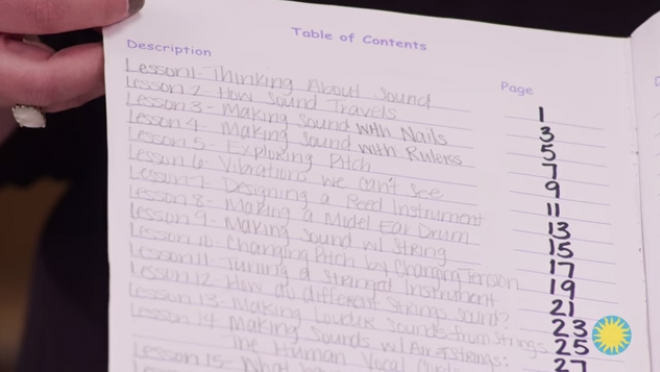 Table of Contents
Description Page
Lesson 1- Thinking About Sound 1
Lesson 2- How Sound Travels 3
Lesson 3- Making Sound with Nails 5
Lesson 4- Making Sound with Rulerss 7
Lesson 5- Exploring Pitch 9
Lesson 6- Vibrations we can't see 11
Lesson 7- Designing a Reed Instrument 13
Lesson 8- Making a Model Ear Drum 15
Lesson 9- Making Sound w/ String 17
Lesson 10- Changing Pitch by Changing Tension 19
Lesson 11- Tuning a Stringed Instrument 21
Lesson 12- How do different Strings Sound? 23
Lesson 13- Making Louder Sounds from Strings 25
Lesson 14 Making Sounds w/ Air & Strings: 27
The Human Vocal
Lesson 15- What